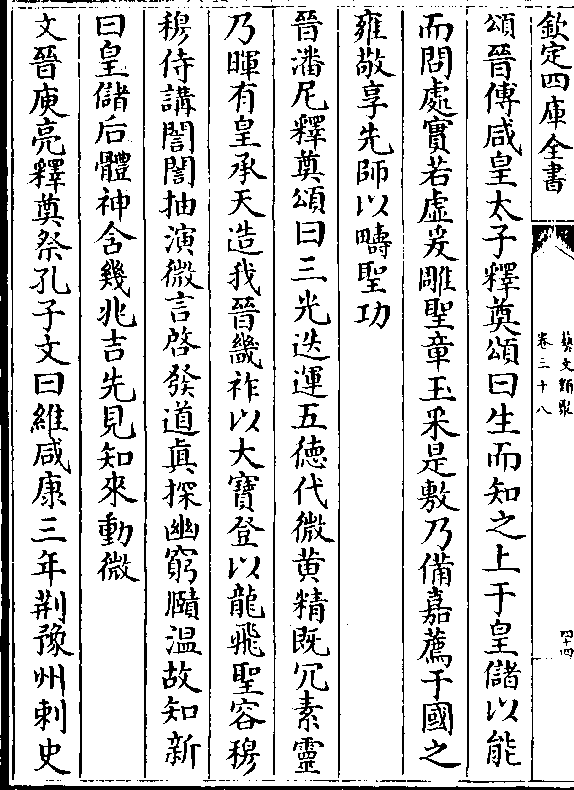 欽定四庫全書
藝文類聚
卷三十八
四十四
頌晉傅咸皇太子釋奠頌曰生而知之上于皇儲以能
而問處實若虛爰雕聖章玉采是敷乃備嘉薦于國之
雍敬享先師以疇聖功
晉潘尼釋奠頌曰三光迭運五徳代微黄精既冗素靈
乃暉有皇承天造我晉畿祚以大寶登以龍飛聖容穆
穆侍講誾誾抽演微言啓發道真探幽窮賾温故知新
曰皇儲后體神含幾兆吉先見知來動微
文晉庾亮釋奠祭孔子文曰維咸康三年荆豫州刺史